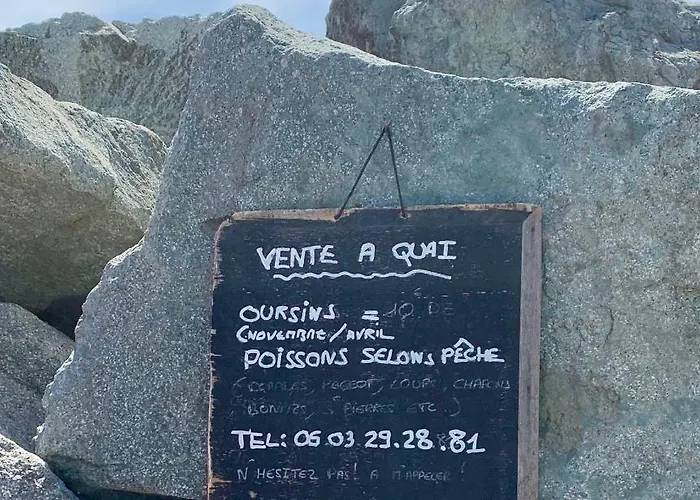 VENTE A QUAI
OURSINS = 10 DE
(NOVEMBRE/AVRIL
POISSONS SELONS PÊCHE
LOUPS, CHAPONS
S PIERRES ETC.)
TEL: 06.03.29.28.81
N HESITEZ PAS! A M'APPELER!